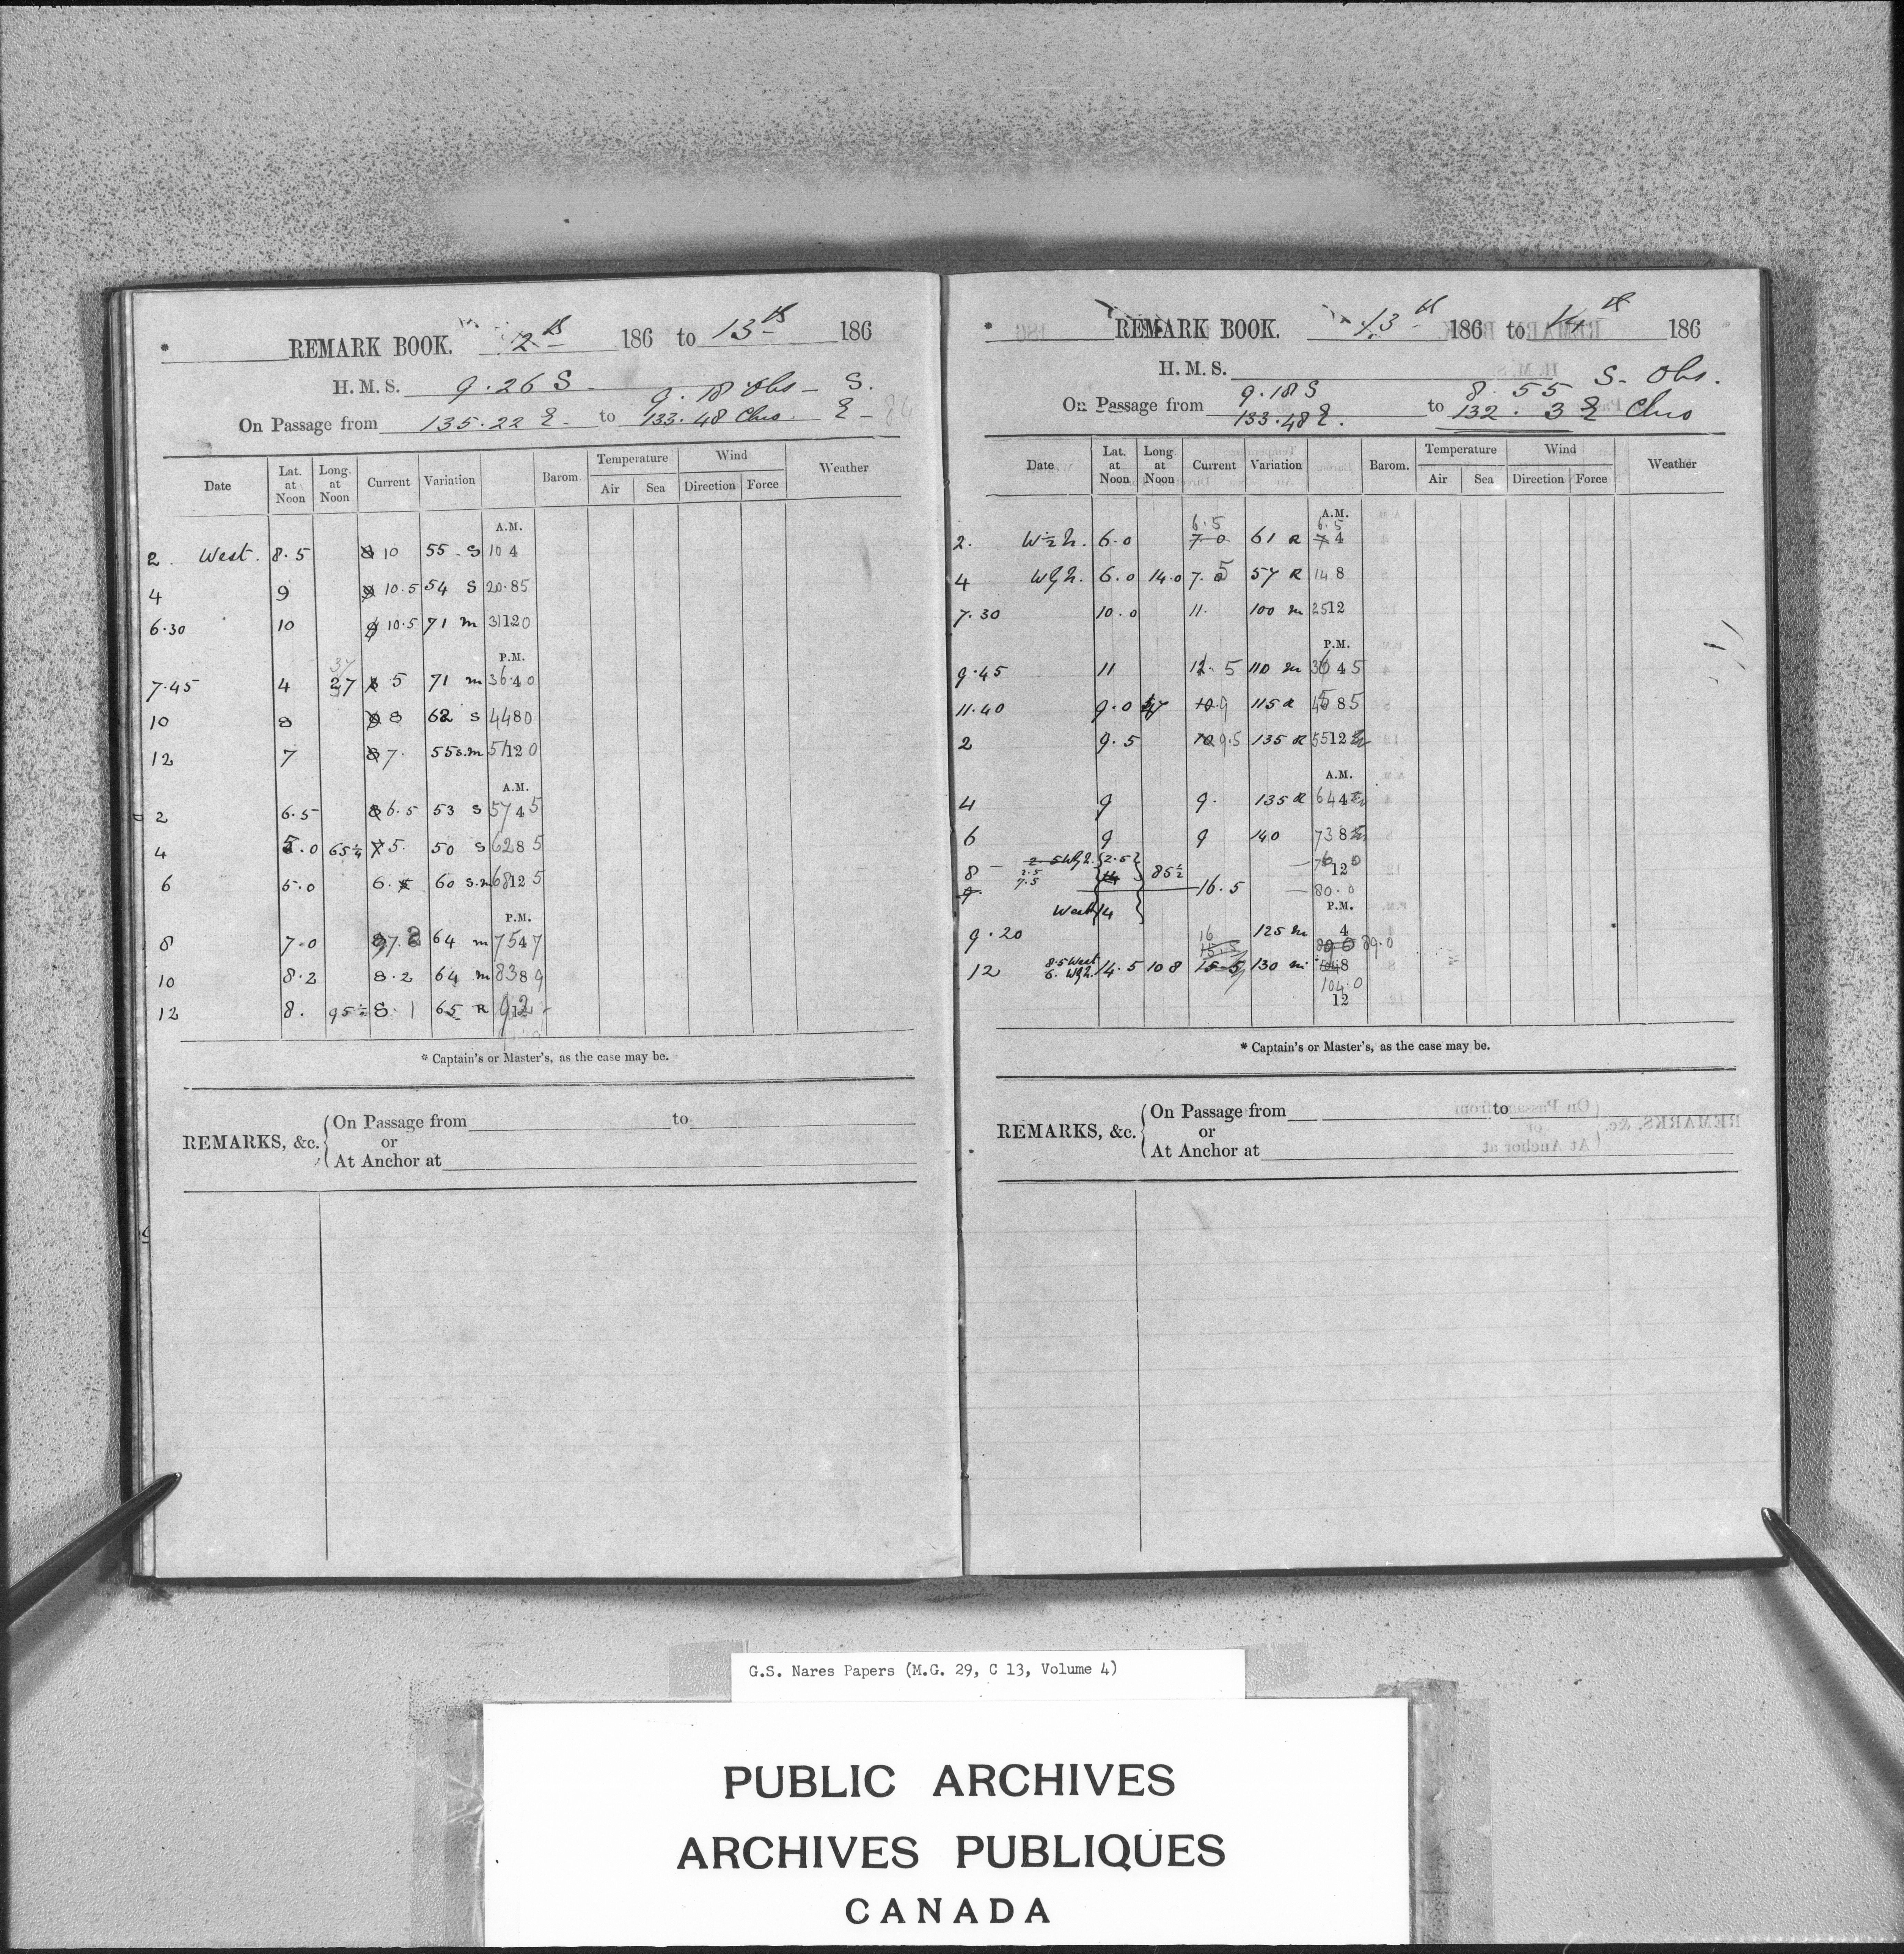 * REMARK BOOK. 12th 186 to 13th 186
H.M.S. 9.26 S 9.18 Obs - S.
On Passage from 135.22 E. to 133.48 Chro. E -
Date Lat. at Noon Long. at Noon Current Variation Barom. Temperature Air Sea Wind Direction Force Weather
A.M.
2. West. 8.5 10 55 - S 10 4
4 9 10.5 54 S 20.85
6.30 10 10.5 71 m 31 12 0
P.M.
7.45 4 37 5 71 m 36.40
10 8 8 62 S 44 8 0
12 7 7. 55 s.m 51 12 0
A.M.
2 6.5 6.5 53 S 57 4 5
4 5.0 65¼ 5. 50 S 62 8 5
6 5.0 6. 60 s.m 68 12 5
P.M.
8 7.0 7.2 64 m 75 4 7
10 8.2 8.2 64 m 83 8 9
12 8. 95½ 8.1 65 R 92
* Captain's or Master's, as the case may be.
REMARKS, &c. On Passage from to
or
At Anchor at
* REMARK BOOK. 13th 186 to 14th 186
H.M.S.
On Passage from 9.18 S 133.48 E. to 8.55 S. Obs. 132.3 E Chro
Date Lat. at Noon Long at Noon Current Variation Barom. Temperature Air Sea Wind Direction Force Weather
A.M.
6.5 6.5
2. W½N. 6.0 7.0 61 R 7 4
4 WbN. 6.0 14.0 7.5 57 R 14 8
7.30 10.0 11. 100 m 25 12
P.M.
9.45 11 12.5 110 m 36 4 5
11.40 9.0 9 115 R 45 8 5
2 9.5 9.5 135 R 55 12
A.M.
4 9 9. 135 R 64 4
6 9 9 140 73 8
8 2.5 WbN. 2.5 85½ 12
2.5
7.5
9. 16.5 80.0
P.M.
West 14
9.20 16 125 m 4 89.0
15.5
12 8.5 West 14.5 108 15.5 130 m 8
6. WbN.
104.0
12
* Captain's or Master's, as the case may be.
REMARKS, &c. On Passage from to
or
At Anchor at
G.S. Nares Papers (M.G. 29, C 13, Volume 4)
PUBLIC ARCHIVES
ARCHIVES PUBLIQUES
CANADA